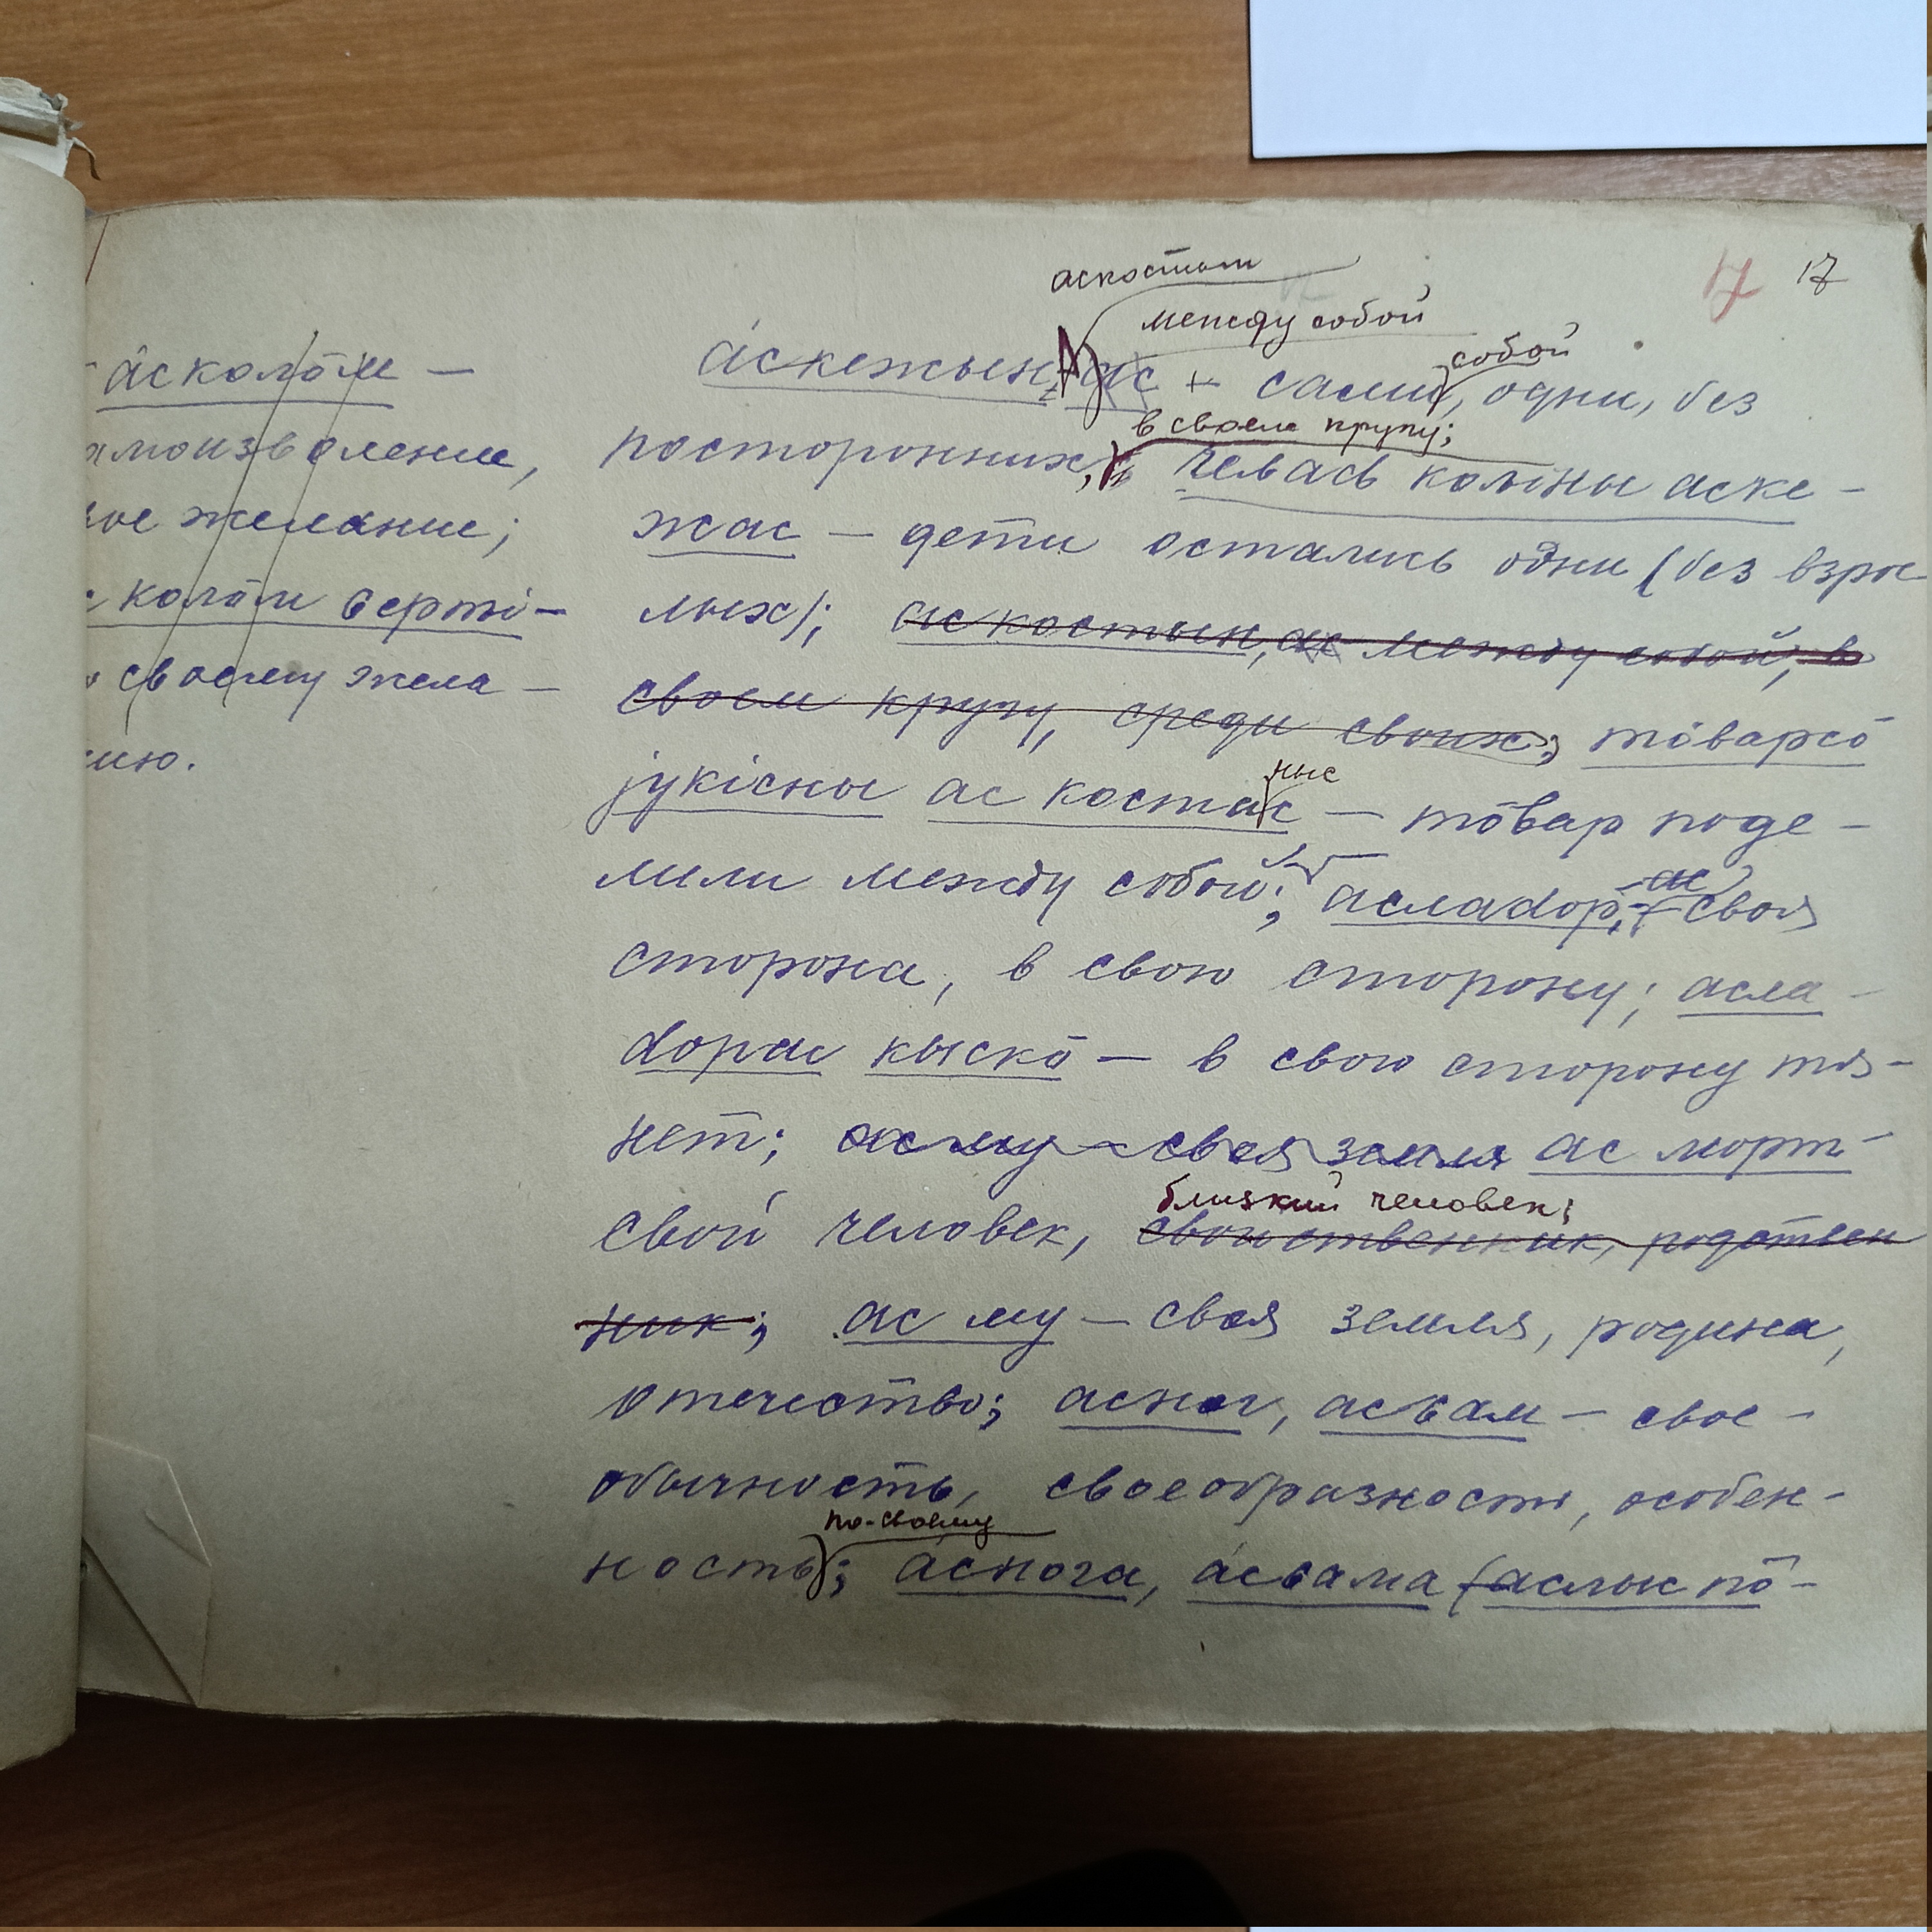 17 17
аскостын
между собой
а́скежын, ас — сами, собой, одни, без
в своем кругу;
посторонних, челаԁ коԉіны аске-
жас — дети остались одни (без взрос
лых); ас костын, ас между собой, в
своем кругу, среди своих; тӧварсӧ
јукісны ас костас ныс — товар поде-
лили между собой; асладор, ас — своя
сторона, в свою сторону; асла-
дорас кыскӧ — в свою сторону тя-
нет; ас му — своя земля ас морт —
близкий человек;
свой человек, свойственник, родствен
ник; ас му — своя земля, родина,
отечество; асног, асвам — свое-
обычность, своеобразность, особен-
по-своему
ность; а́снога, а́свама (аслыс пӧ-
а́сколӧм —
амоизволение,
ое желание;
колӧм серті —
своему жела-
ию.